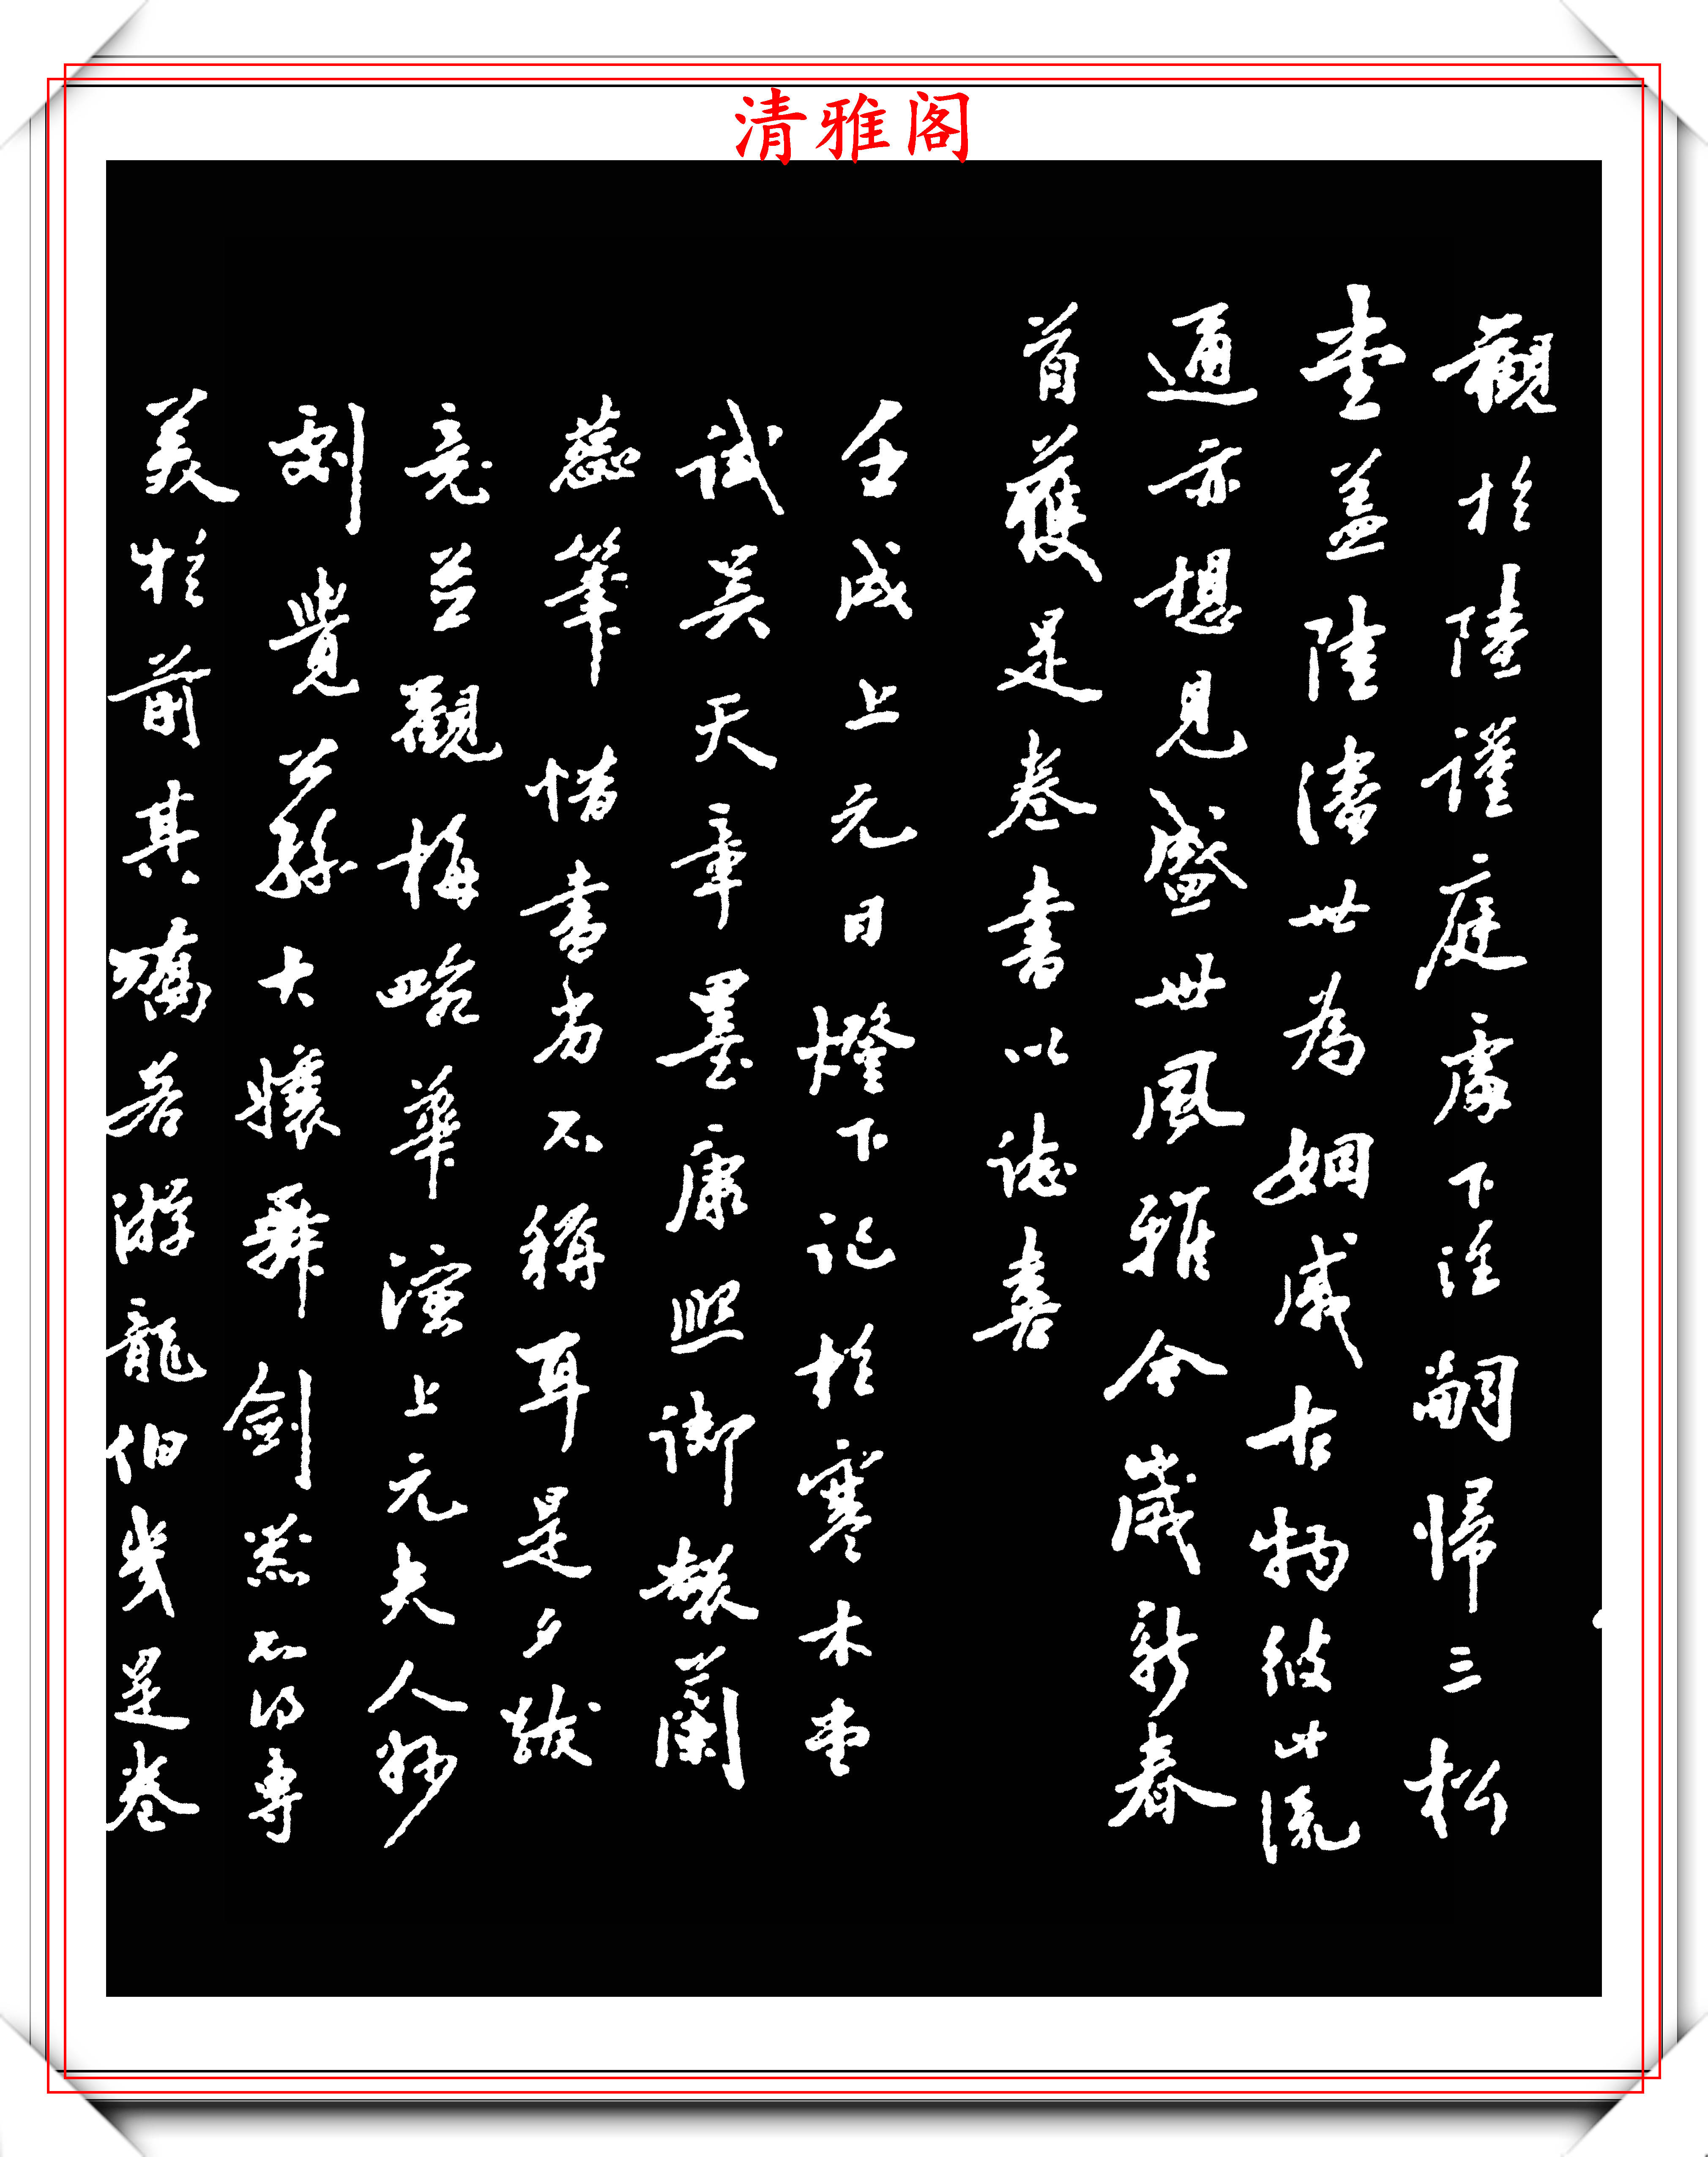 清雅阁
觀於陸謹庭處下詮嗣歸三松
堂蓋陸潘世為姻戚古物彼此流
通亦想見盛世風雅今歲新春
首獲是卷書以誌喜
壬戌上元日燈下記於寒木堂
試吳天章墨康熙御製蘭
蕊筆惜書劣不稱耳是夕跋
竟並觀梅晼華演上元夫人妙
刻覺公孫大孃舞劍器不得專
美於前其矯若游龍伯幾是卷